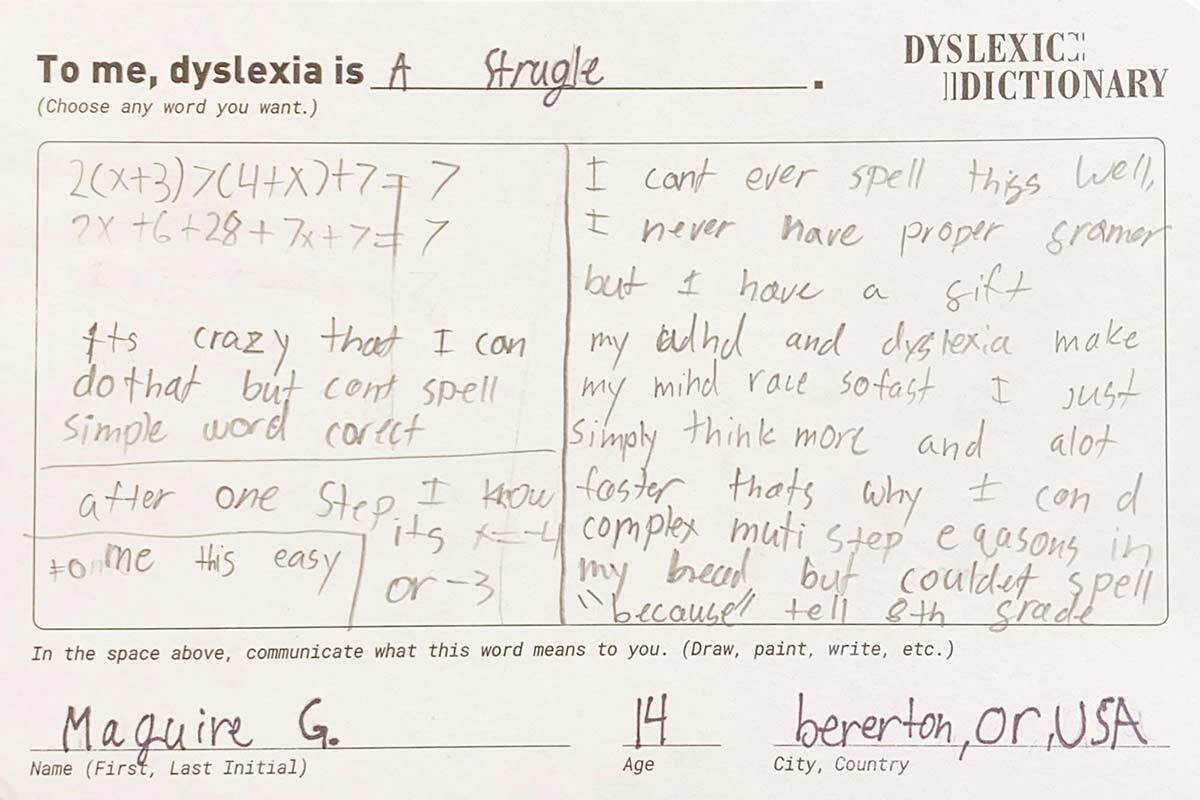 To me, dyslexia is A Strugle.
(Choose any word you want.)
DYSLEXIC
DICTIONARY
2(x+3)7(4+x)+7=7
2x+6+28+7x+7=7
Its crazy that I can
do that but cant spell
simple word corect
after one step, I know
its x=-4
or -3
to me this easy
I cant ever spell thigs well,
I never have proper gramer
but I have a gift
my adhd and dyslexia make
my mind race so fast I just
simply think more and alot
faster thats why I can d
complex muti step eqasons in
my head but couldet spell
"because" tell 8th grade
In the space above, communicate what this word means to you. (Draw, paint, write, etc.)
Maguire G.
Name (First, Last Initial)
14
Age
bererton, Or, USA
City, Country